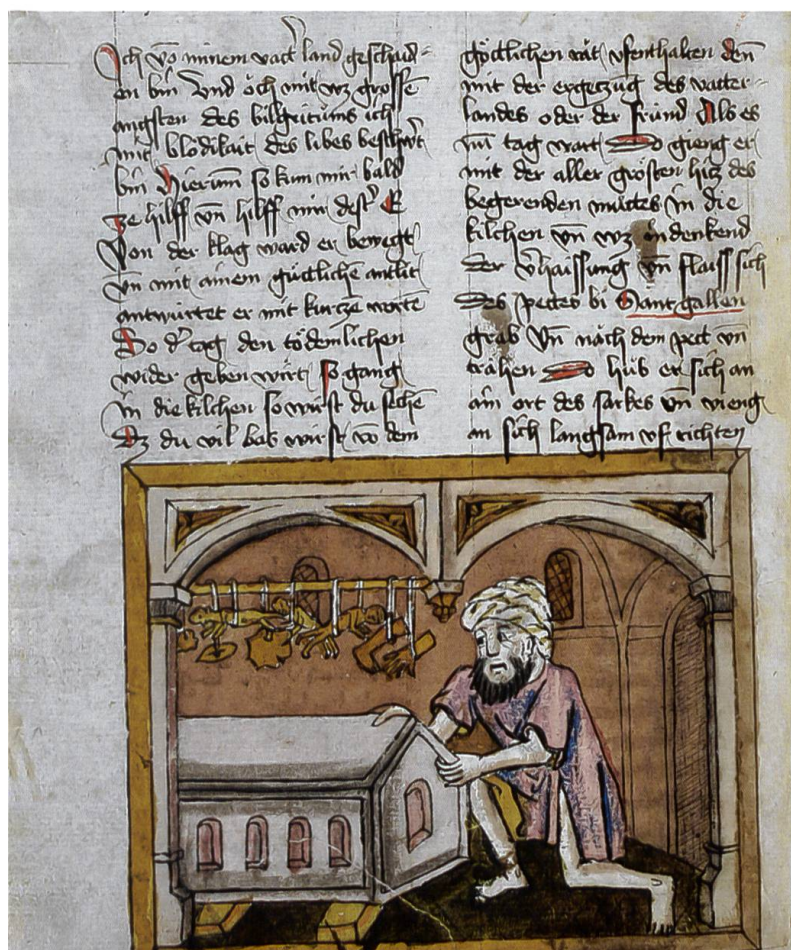 Ich vō minem vatt͛ land geschaid-
en bin Vnd och mit wz grossē
angsten des bilgritums ich
mit blödikait des libes beschw͛t
bin Hierum̄ so kum mir bald
ze hilff vn̄ hilff mir dest͛ E
Von der klag ward er bewegt
vn̄ mit ainem gütlichē antlit
antwürtet er mit kurczē worte
So d͛ tag den tödemlichen
wider geben wirt so gang
in die kilchen so wirst du sechē
Dz du vil bas wirst vō dem
göttlichen rät vfenthalten den̄
mit der ergetzug des vatter-
landes oder der fründ Als es
nun tag wart Do gieng er
mit der aller grösten hitz des
begerenden mūttes in die
kilchen vn̄ wz Indenkend
der v͛haissung vn̄ flaiss sich
des pettes bi Sant gallen
grab Vn̄ näch dem pett vn̄
trähen Do hüb er sich an
ain ort des sarkes vn̄ vieng
an sich langsam vf richten